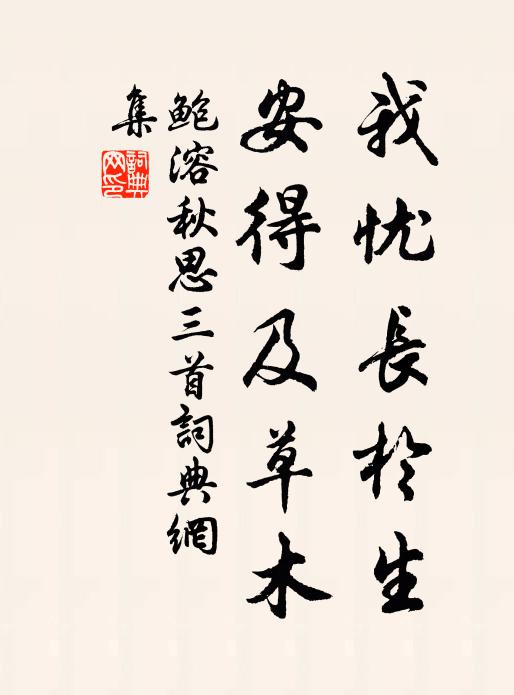 我忧長於生
安得及草木
鲍溶秋思三首詞典網
集
詞典
网印